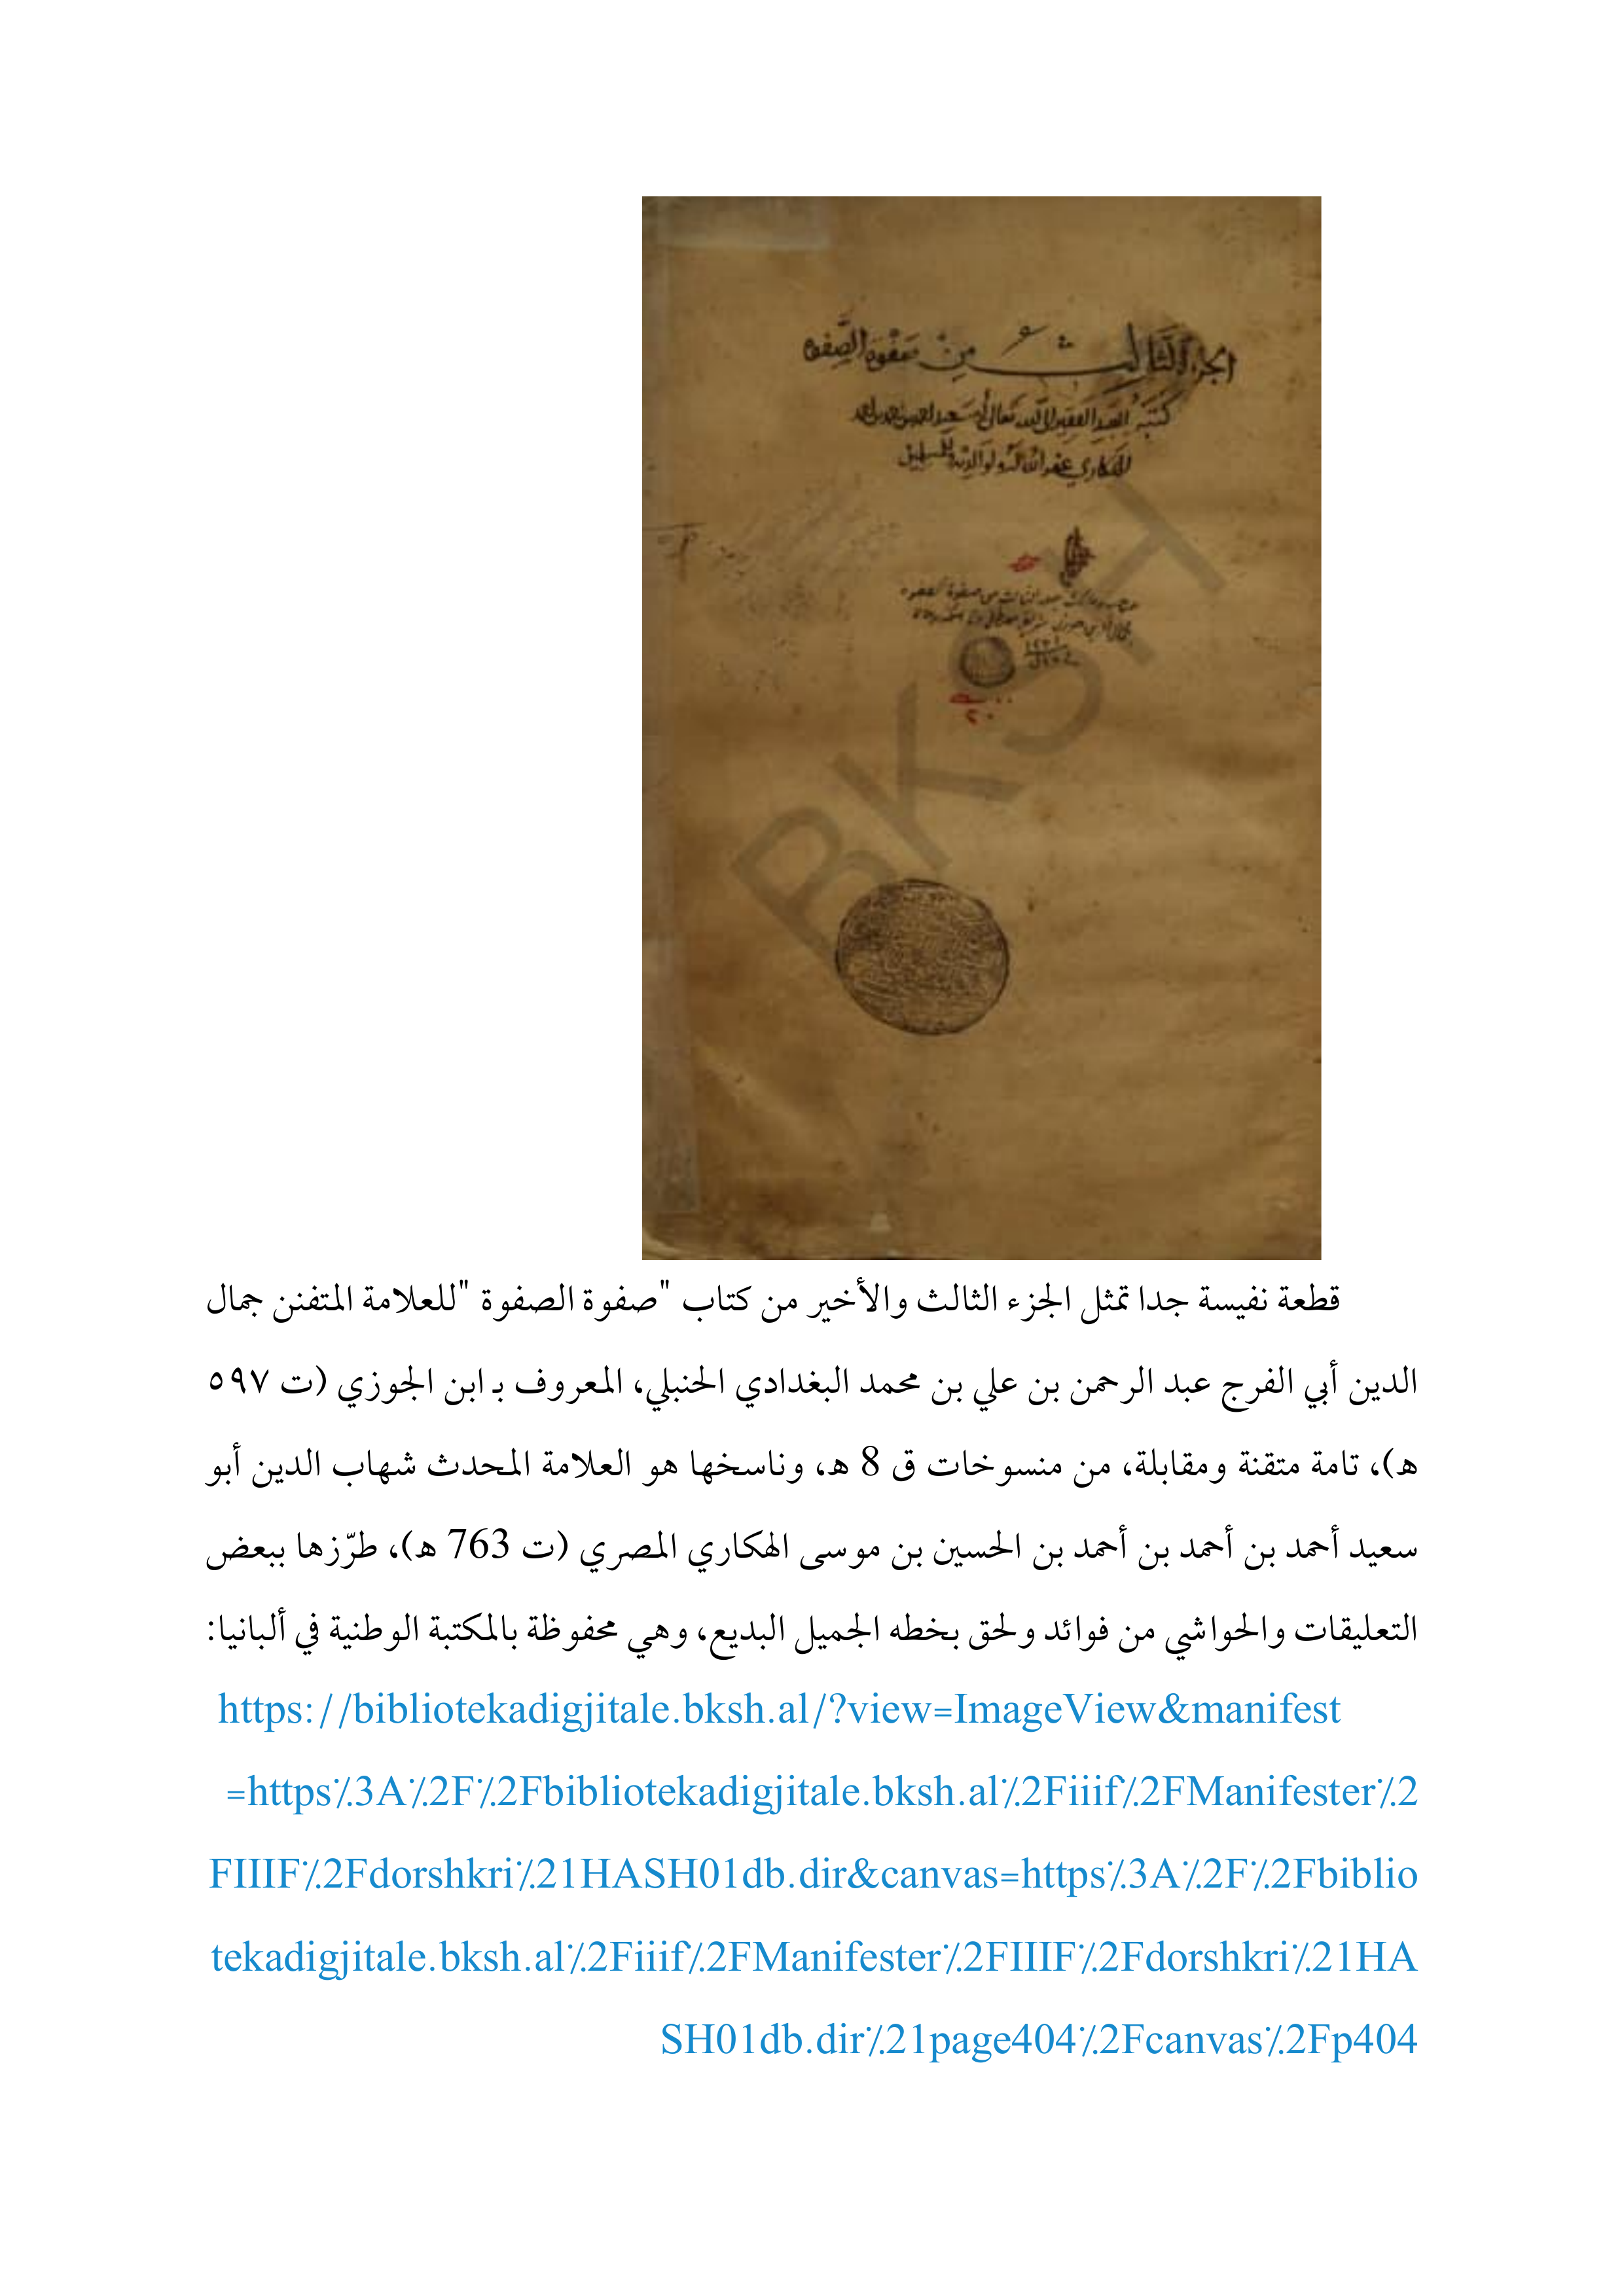 الجزء الثالث من صفوة الصفوه
كتبه العبد الفقير الى الله تعالى احمد بن احمد بن احمد
الهكاري غفر الله له ولوالديه وللمسلمين
BKSH
٢٠
قطعة نفيسة جدا تمثل الجزء الثالث والأخير من كتاب "صفوة الصفوة "للعلامة المتفنن جمال
الدين أبي الفرج عبد الرحمن بن علي بن محمد البغدادي الحنبلي، المعروف بـ ابن الجوزي (ت ٥٩٧
هـ)، تامة متقنة ومقابلة، من منسوخات ق 8 هـ، وناسخها هو العلامة المحدث شهاب الدين أبو
سعيد أحمد بن أحمد بن أحمد بن الحسين بن موسى الهكاري المصري (ت 763 هـ)، طرّزها ببعض
التعليقات والحواشي من فوائد ولحق بخطه الجميل البديع، وهي محفوظة بالمكتبة الوطنية في ألبانيا:
https://bibliotekadigjitale.bksh.al/?view=ImageView&manifest
=https%3A%2F%2Fbibliotekadigjitale.bksh.al%2Fiiif%2FManifester%2
FIIIF%2Fdorshkri%21HASH01db.dir&canvas=https%3A%2F%2Fbiblio
tekadigjitale.bksh.al%2Fiiif%2FManifester%2FIIIF%2Fdorshkri%21HA
SH01db.dir%21page404%2Fcanvas%2Fp404